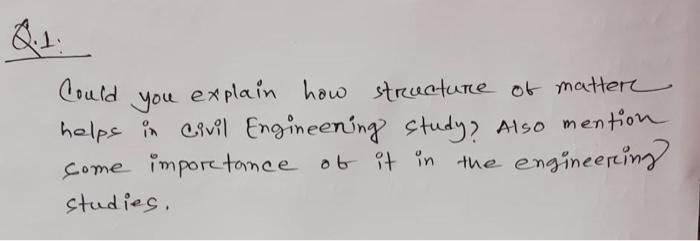 Q.1.
Could you explain how structure of matter
helps in Civil Engineering study? Also mention
some importance of it in the engineering
studies.